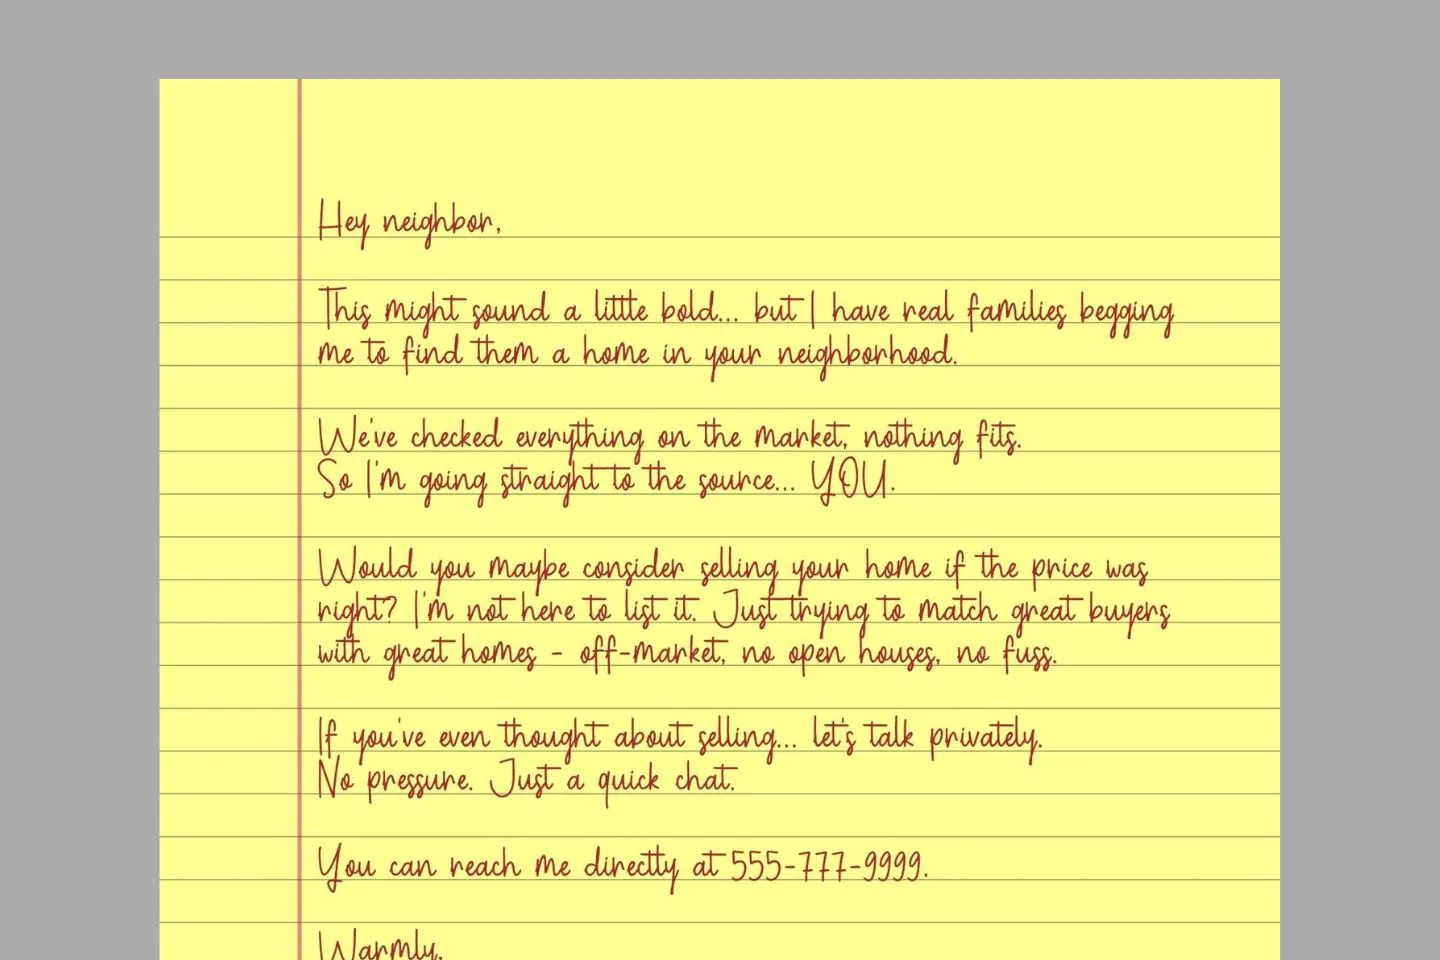 Hey neighbor,
This might sound a little bold... but I have real families begging
me to find them a home in your neighborhood.
We've checked everything on the market, nothing fits.
So I'm going straight to the source... YOU.
Would you maybe consider selling your home if the price was
right? I'm not here to list it. Just trying to match great buyers
with great homes - off-market, no open houses, no fuss.
If you've even thought about selling... let's talk privately.
No pressure. Just a quick chat.
You can reach me directly at 555-777-9999.
Warmly,